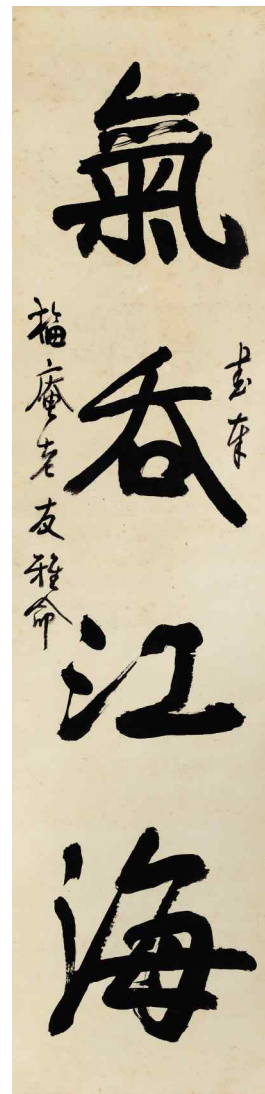 氣吞江海
書奉
梅庵老友雅命